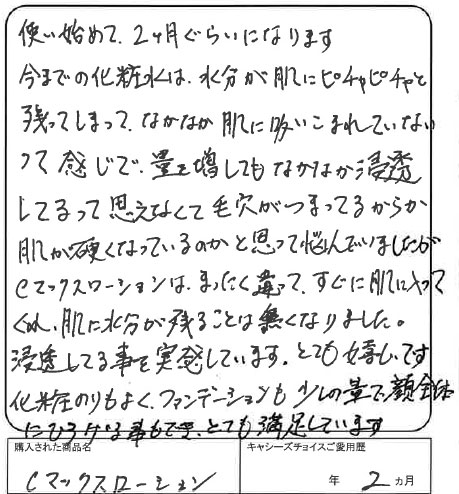 使い始めて、2ヶ月ぐらいになります
今までの化粧水は、水分が肌にピチャピチャと
残ってしまって、なかなか肌に吸いこまれていない
って感じで、量を増してもなかなか浸透
してるって思えなくて毛穴がつまってるからか
肌が硬くなっているのかと思って悩んでいましたが
Cマックスローションは、まったく違って、すぐに肌に入って
くれ、肌に水分が残ることは無くなりました。
浸透してる事を実感しています。とても嬉しいです
化粧のりもよく、ファンデーションも少しの量で、顔全体
にひろげる事もでき、とても満足しています
購入された商品名
キャシーズチョイスご愛用歴
Cマックスローション
年 2 カ月